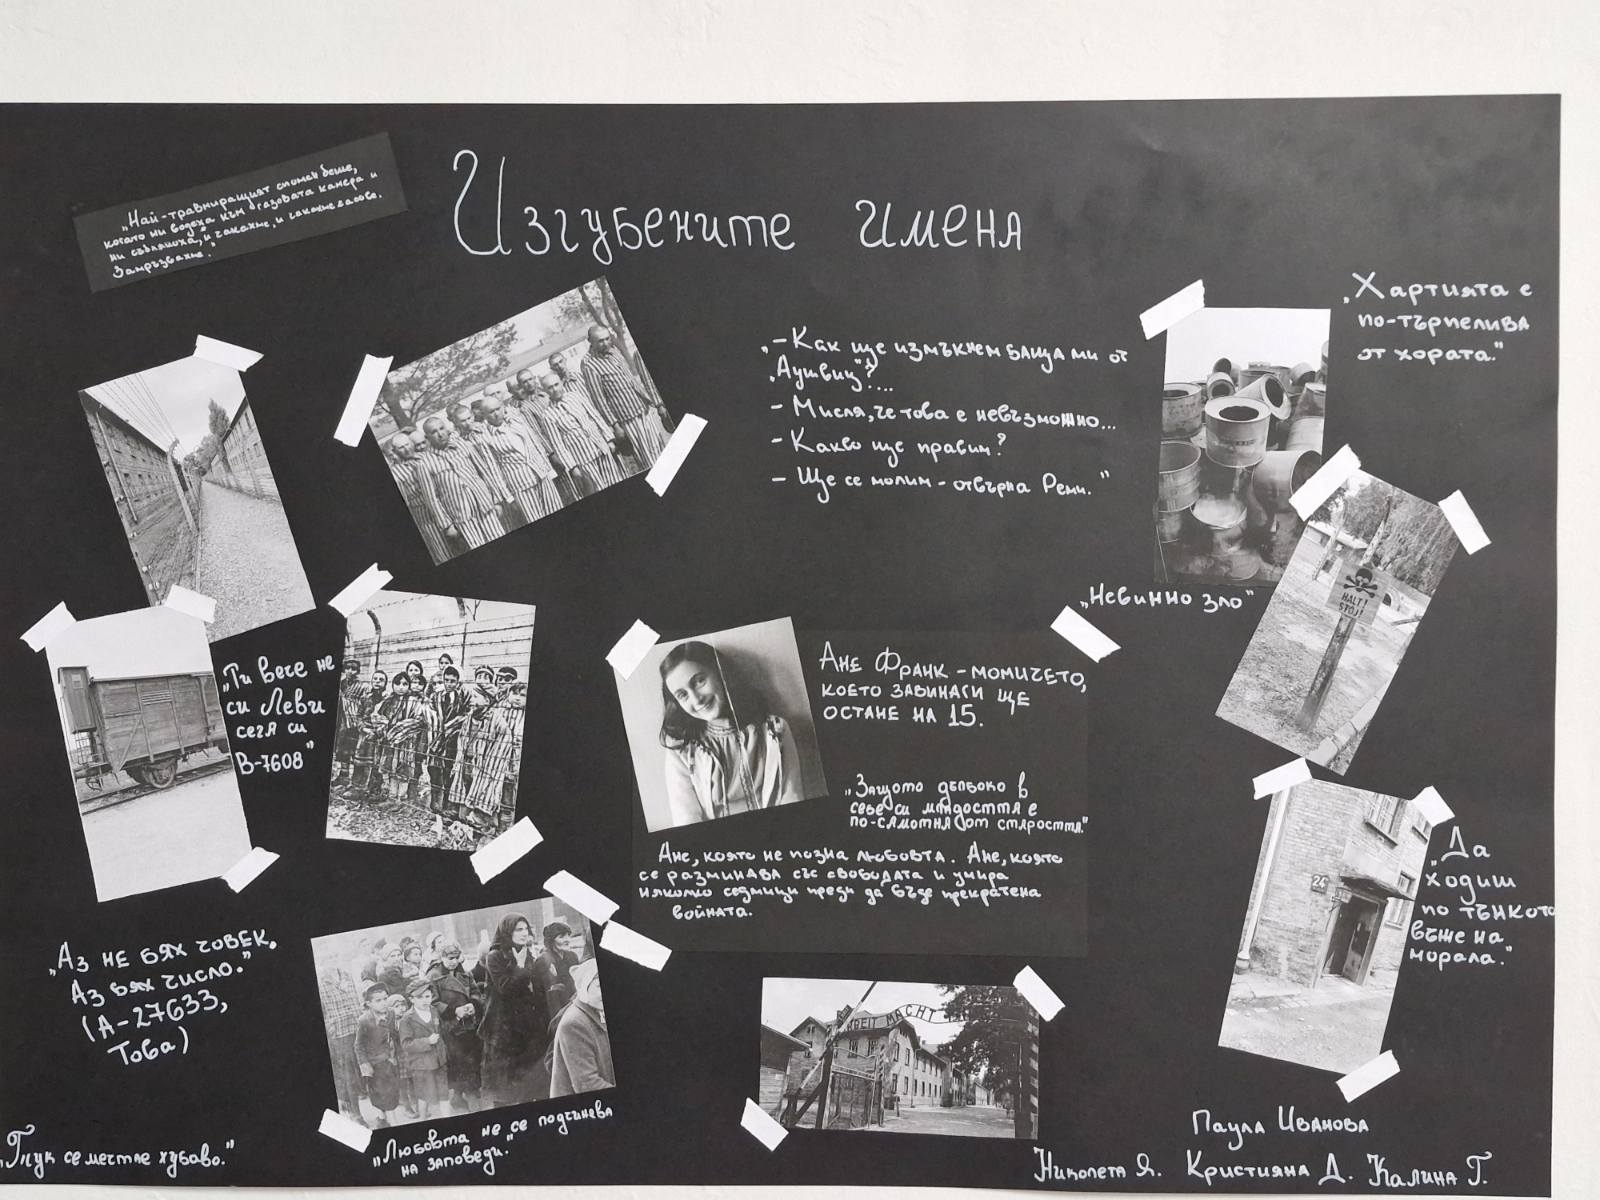 Изгубените имена
„Най-травмиращият спомен беше,
когато ни водеха към газовата камера и
ни събличаха, и чакахме, и чакахме голи
Замръзвахме."
„- Как ще измъкнем баща ми от
„Аушвиц"?...
- Мисля, че това е невъзможно...
- Какво ще правим?
- Ще се молим - отвърна Реми."
„Хартията е
по-търпелива
от хората."
„Невинно зло"
HALT!
STÓJ!
„Ти вече не
си Леви
сега си
В-7608"
Ане Франк - момичето,
което завинаги ще
остане на 15.
„Защото дълбоко в
себе си младостта е
по-самотна от старостта."
Ане, която не позна любовта. Ане, която
се разминава със свободата и умира
няколко седмици преди да бъде прекратена
войната.
24
„Да
ходиш
по тънкото
въже на
морала."
„Аз не бях човек.
Аз бях число."
(А-27633,
Това)
ARBEIT MACHT
„Тук се мечтае хубаво."
„Любовта не се подчинява
на заповеди."
Паула Иванова
Николета Я. Кристияна Д. Калина Г.